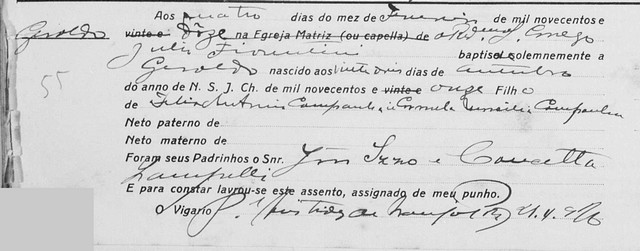 Aos quatro dias do mez de Fevereiro de mil novecentos e
Geroldo vinte e doze na Egreja Matriz (ou capella) de o Rdmo Conego
Julio Fiorentini baptisei solemnemente a
Geroldo nascido aos vinte dias de outubro
55
do anno de N. S. J. Ch. de mil novecentos e vinte e onze Filho
de Felix Antonio Campanha e Carmela Campanha
Neto paterno de
Neto materno de
Foram seus Padrinhos o Snr. Izzo e Concetta
E para constar lavrou-se este assento, assignado de meu punho.
O Vigario P.